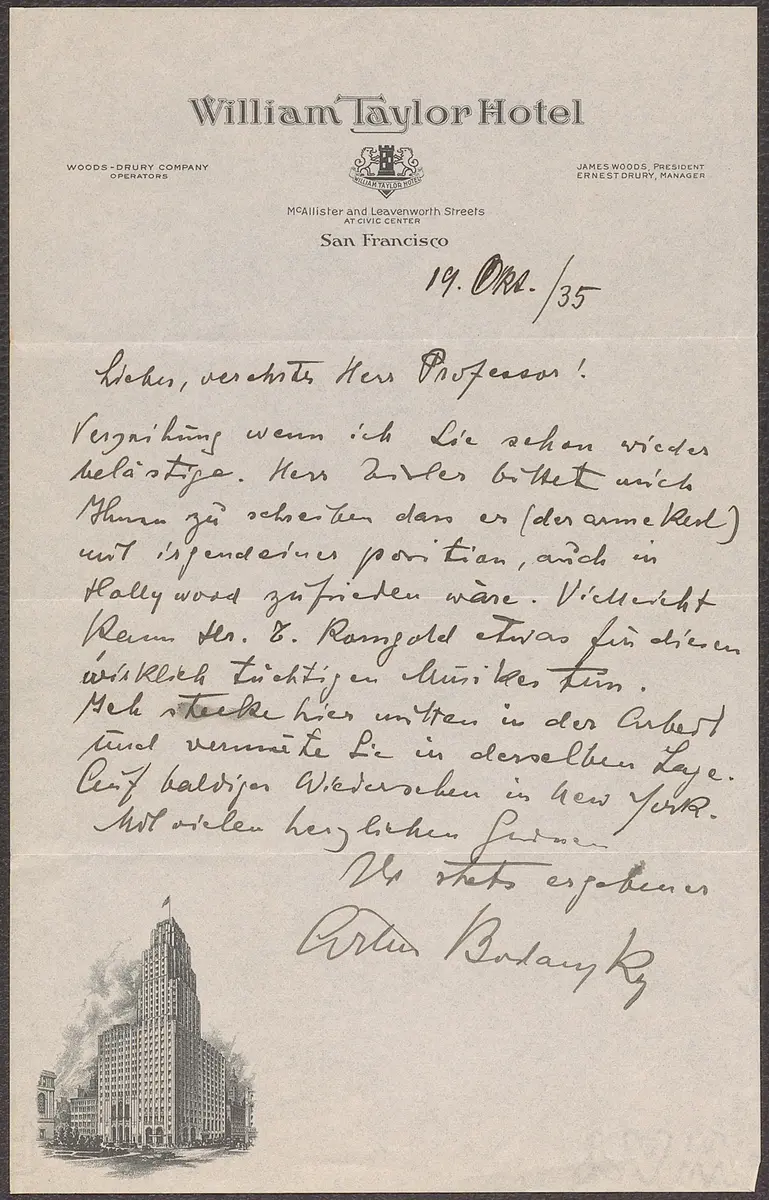 William Taylor Hotel
WOODS-DRURY COMPANY
OPERATORS
WILLIAM TAYLOR HOTEL
JAMES WOODS, PRESIDENT
ERNEST DRURY, MANAGER
McAllister and Leavenworth Streets
AT CIVIC CENTER
San Francisco
19. Okt. /35
Lieber, verehrter Herr Professor!
Verzeihung wenn ich Sie schon wieder
belästige. Herr bittet mich
Ihnen zu schreiben dass er (der arme Kerl)
mit irgendeiner position, auch in
Hollywood zufrieden wäre. Vielleicht
kann Hr. E. Korngold etwas für diesen
wirklich tüchtigen Musiker tun.
Ich stecke hier mitten in der Arbeit
und vermute Sie in derselben Lage.
Auf baldiges Wiedersehen in New York.
Mit vielen herzlichen Grüssen
Ihr stets ergebener
Artur Bodanzky